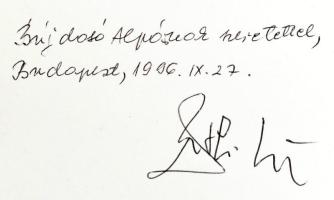 Bújdosó Alpárnak szeretettel,
Budapest, 1996. IX. 27.